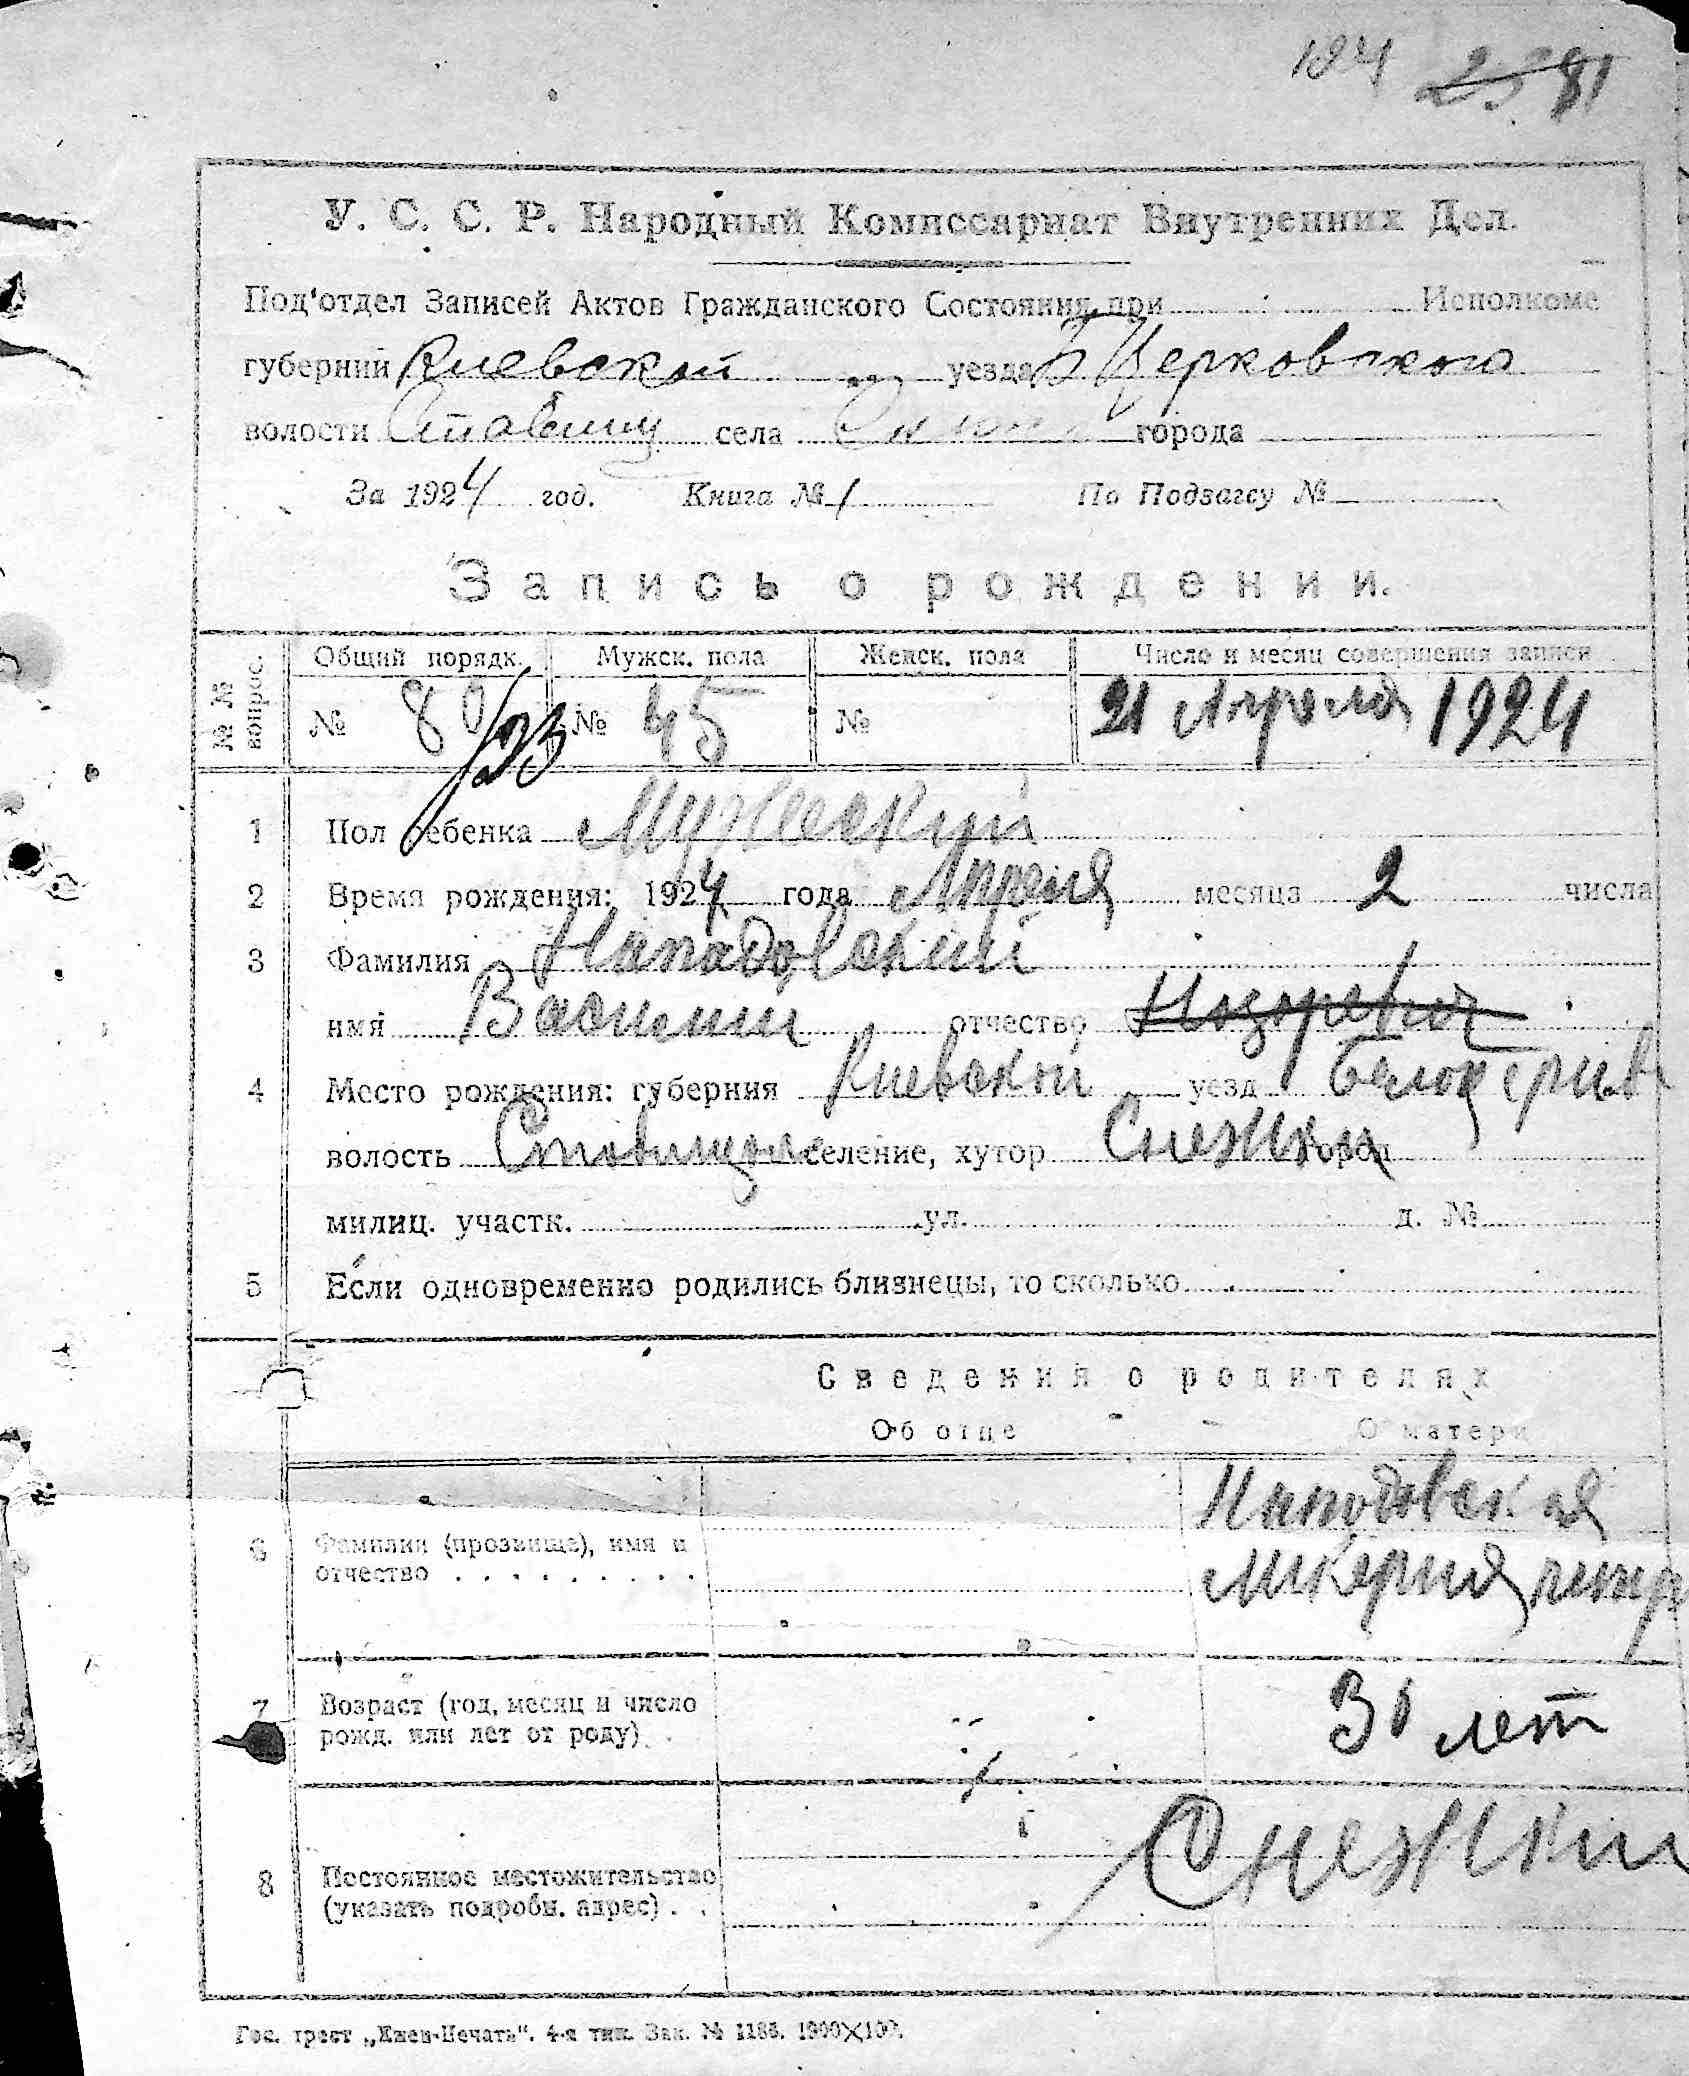 184 2381
У. С. С. Р. Народный Комиссариат Внутренних Дел.
Под'отдел Записей Актов Гражданского Состояния при Исполкоме
губернии Киевской уезда Б Церковского
волости села города
За 1924 год. Книга № 1 По Подзагсу №
Запись о рождении.
№ № вопрос. Общий порядк. Мужск. пола Женск. пола Число и месяц совершения записи
№ 80/93 № 45 № 21 Апреля 1924
1 Пол ребенка Мужеский
2 Время рождения: 1924 года Апреля месяца 2 числа
3 Фамилия Нападовский
имя Василий отчество
4 Место рождения: губерния Киевской уезд Белоцерков
волость селение, хутор Снежки город
милиц. участк. ул. д. №
5 Если одновременно родились близнецы, то сколько
Сведения о родителях
Об отце О матери
Нападовская
6 Фамилия (прозвище), имя и
отчество . . . . . . . . . Ликерия
7 Возраст (год, месяц и число
рожд. или лет от роду) лет
Снежки
8 Постоянное местожительство
(указать подробн. адрес) . .
Гос. трест „Киев-Печать". 4-я тип. Зак. № 1186. 1900×100.